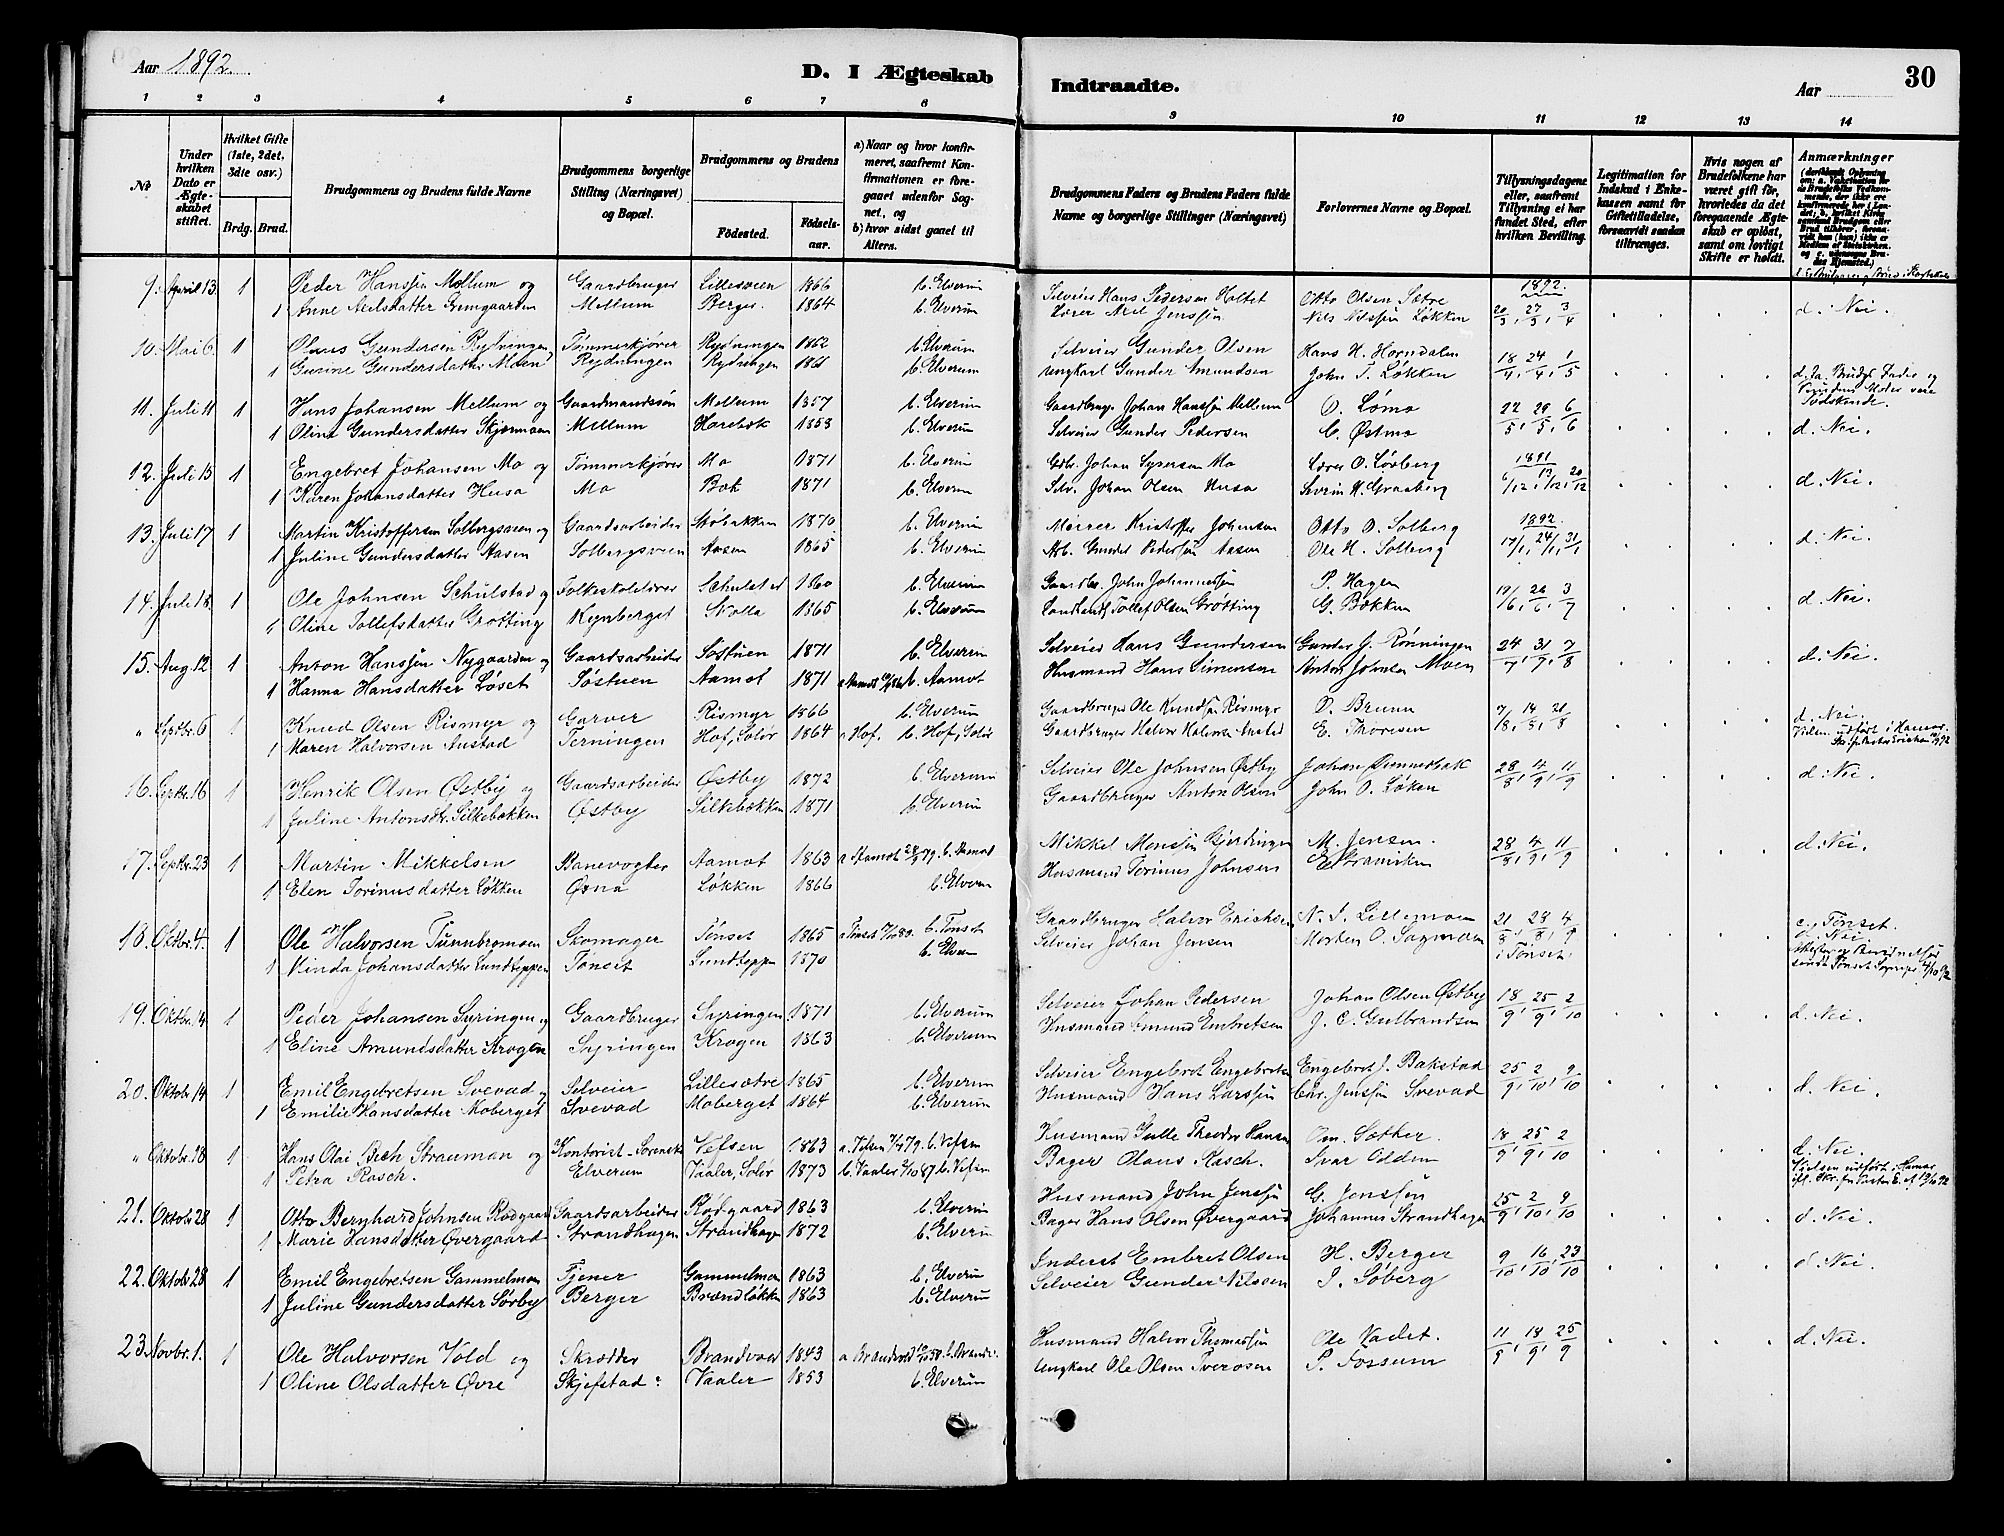 Aar 1892.
D. I Ægteskab
Indtraadte.
Aar
30
1 2 3 4 5 6 7 8
9 10 11 12 13 14
No
Under hvilken Dato er Ægteskabet stiftet.
Hvilket Gifte (1ste, 2det, 3die osv.)
Brdg. Brud.
Brudgommens og Brudens fulde Navne
Brudgommens borgerlige Stilling (Næringsvei) og Bopæl.
Brudgommens og Brudens
Fødested.
Fødselsaar.
a) Naar og hvor konfirmeret, saafremt Konfirmationen er foregaaet udenfor Sognet, og
b) hvor sidst gaaet til Alters.
Brudgommens Faders og Brudens Faders fulde Navne og borgerlige Stillinger (Næringsvei)
Forlovernes Navne og Bopæl.
Tillysningsdagene eller, saafremt Tillysning ei har fundet Sted, efter hvilken Bevilling.
Legitimation for Indskud i Enkekassen samt for Giftetilladelse, forsaavidt saadan tiltrænges.
Hvis nogen af Brudefolkene har været gift før, hvorledes da det foregaaende Ægteskab er opløst, samt om lovligt Skifte er holdt.
Anmærkninger
9. April 13. 1 Peder Hanssøn Mellum og Gaardbruger Lilleseien 1866 b. Elverum Selveier Hans Pedersen Holtet Otto Olsen Sætre 1892.
1 Anne Mellum Berger 1864 b. Elverum Lærer Jenssøn Nils Nilssøn Løkken 20/3, 27/3, 3/4 d. Nei.
10. Mai 6. 1 Olaus Gundersen Rydningen Tømmerkjører Rydningen 1862 b. Elverum Selveier Gunder Olsen Hans H. Horndalen
1 Gurine Gundersdatter Moen Rydningen Rydningen b. Elverum Ungkarl Gunder Amundsen John T. Løkken 18/4, 24/4, 1/5
11. Juli 11 1 Hans Johansen Mellum og Gaardmandssøn Mellum 1857 b. Elverum Gaardbrug. Johan Hanssøn Mellum O. Lømo
1 Oline Gundersdatter Skjærmoen Mellum 1853 b. Elverum Selveier Gunder Pedersen C. Østmo 22/5, 29/5, 6/6 d. Nei.
12. Juli 15 1 Engebret Johansen Mo og Tømmerkjører Mo 1871 b. Elverum Gdb. Johan Mo Lærer O. Løvberg 1891
1 Karen Johansdatter Husa Mo Bok 1871 b. Elverum Selv. Johan Olsen Husa Severin H. Graaberg 6/12, 13/12, 20/12 d. Nei.
13. Juli 17 1 Martin Kristoffersen Solbergsveen og Gaardsarbeider Skobakken 1870 b. Elverum Kristoffer Johansen Otto O. Solberg 1892.
1 Juline Gundersdatter Aasen Solbergsveen Aasen 1865 b. Elverum Arb. Gunder Pedersøn Aasen Ole H. Solberg 17/1, 24/1, 31/1 d. Nei.
14. Juli 18. 1 Ole Johnsen Schulstad og Folkeskolelærer Schulsted 1860 b. Elverum Gaardbr. John Johannessøn P. Hagen
1 Oline Tollefsdatter Grøtting Kynberget Skolla 1865 b. Elverum Tollef Olsen Grøtting G. Bakken 19/6, 26/6, 3/7 d. Nei.
15. Aug. 12 1 Anton Hanssøn Nygaarden og Gaardsarbeider Søstuen 1871 b. Elverum Selveier Hans Gundersen Gunder J. Rønningen
1 Hanna Hansdatter Løset Søstuen Aamot 1871 b. Aamot Husmand Hans Simensen Anton Johnsen Moen 24/7, 31/7, 7/8 d. Nei.
" Septbr. 6 1 Knud Olsen Rismyr og Garver Rismyr 1866 b. Elverum Gaardbruger Ole Rismyr O. Bruun
1 Maren Halvorsen Austad Terningen Hof, Solør 1864 a Hof. b. Hof, Solør Gaardbruger Halvor Halvorsen Austad E. Thoresen 7/8, 14/8, 21/8 d. Nei.
16. Septbr. 16 1 Henrik Olsen Østby og Gaardsarbeider Østby 1872 b. Elverum Selveier Ole Johnsen Østby Johan Grundtbak
1 Juline Antonsdtr. Silkebækken Østby Silkebækken 1871 b. Elverum Gaardbruger Anton Olsen John O. Løken 28/8, 4/9, 11/9 d. Nei.
17. Septbr. 23 1 Martin Mikkelsen Banevogter Aamot 1863 a Aamot b. Aamot Mikkel Monssøn Gjerdingen M. Jensen.
1 Elen Torinusdatter Løkken Øxna Løkken 1866 b. Elverum Husmand Torinus Johnsen 28/8, 4/9, 11/9 d. Nei.
18. Oktbr. 4. 1 Ole Halvorsen Tunnbromoen Skomager Tønset 1865 a Tønset b. Tønset Gaardbruger Halvor Eriksen N. J. Lillemoen c, Tønset.
1 Minda Johansdatter Lundteppen Tønset Lundteppen 1870 b. Elverum Selveier Johan Jensen Morten O. Sagmoen 21/8, 28/8, 4/9 i Tønset. d. Nei
19. Oktbr. 14 1 Peder Johansen Syringen og Gaardbruger Syringen 1871 b. Elverum Selveier Johan Pedersen Johan Olsen Østby
1 Eline Amundsdatter Krogen Syringen Krogen 1863 b. Elverum Husmand Amund Embretsen J. C. Gulbrandsen 18/9, 25/9, 2/10 d. Nei.
20. Oktobr 14 1 Emil Engebretsen Svevad og Selveier Lillesætre 1865 b. Elverum Selveier Engebret Engebretsen Engebret J. Bakstad
1 Emilie Hansdatter Moberget Svevad Moberget 1864 b. Elverum Husmand Hans Larssøn Chr. Jenssøn Svevad 25/9, 2/10, 9/10 d. Nei.
" Oktobr. 28 1 Hans Olai Bech Strauman og Kontorist Vefsen 1863 a. Vefsen b. Vefsen Husmand Julle Theodor Hansen Om. Sæther.
1 Petra Rasch. Elverum Vaaler, Solør 1873 b. Vaaler b. Vefsen Bager Olaus Rasch. Ivar Odden 18/9, 25/9, 2/10 d. Nei.
21. Oktobr 28 1 Otto Bernhard Johnsen Rødgaard Gaardsarbeider Rødgaard 1863 b. Elverum Husmand John Jenssøn G. Jenssøn
1 Marie Hansdatter Øvergaard Strandhagen Strandhagen 1872 b. Elverum Bager Hans Olsen Øvergaard Johannes Strandhagen 25/9, 2/10, 9/10 d. Nei.
22. Oktobr 28 1 Emil Engebretsen Gammelmoen Tjener Gammelmoen 1863 b. Elverum Inderst Embret Olsen H. Berger
1 Juline Gundersdatter Sørby Berger Brændløkken 1863 b. Elverum Selveier Gunder Nilssen J. Søberg 9/10, 16/10, 23/10 d. Nei.
23. Novbr. 1. 1 Ole Halvorsen Vold og Skrædder Brandvoer 1843 a Brandvold Husmand Halvor Thomassøn Ole Vadet.
1 Oline Olsdatter Øvre Skjefstad Vaaler 1853 b. Elverum Ungkarl Ole Olsen Tveraasen P. Fossum 11/9, 18/9, 25/9 d. Nei.